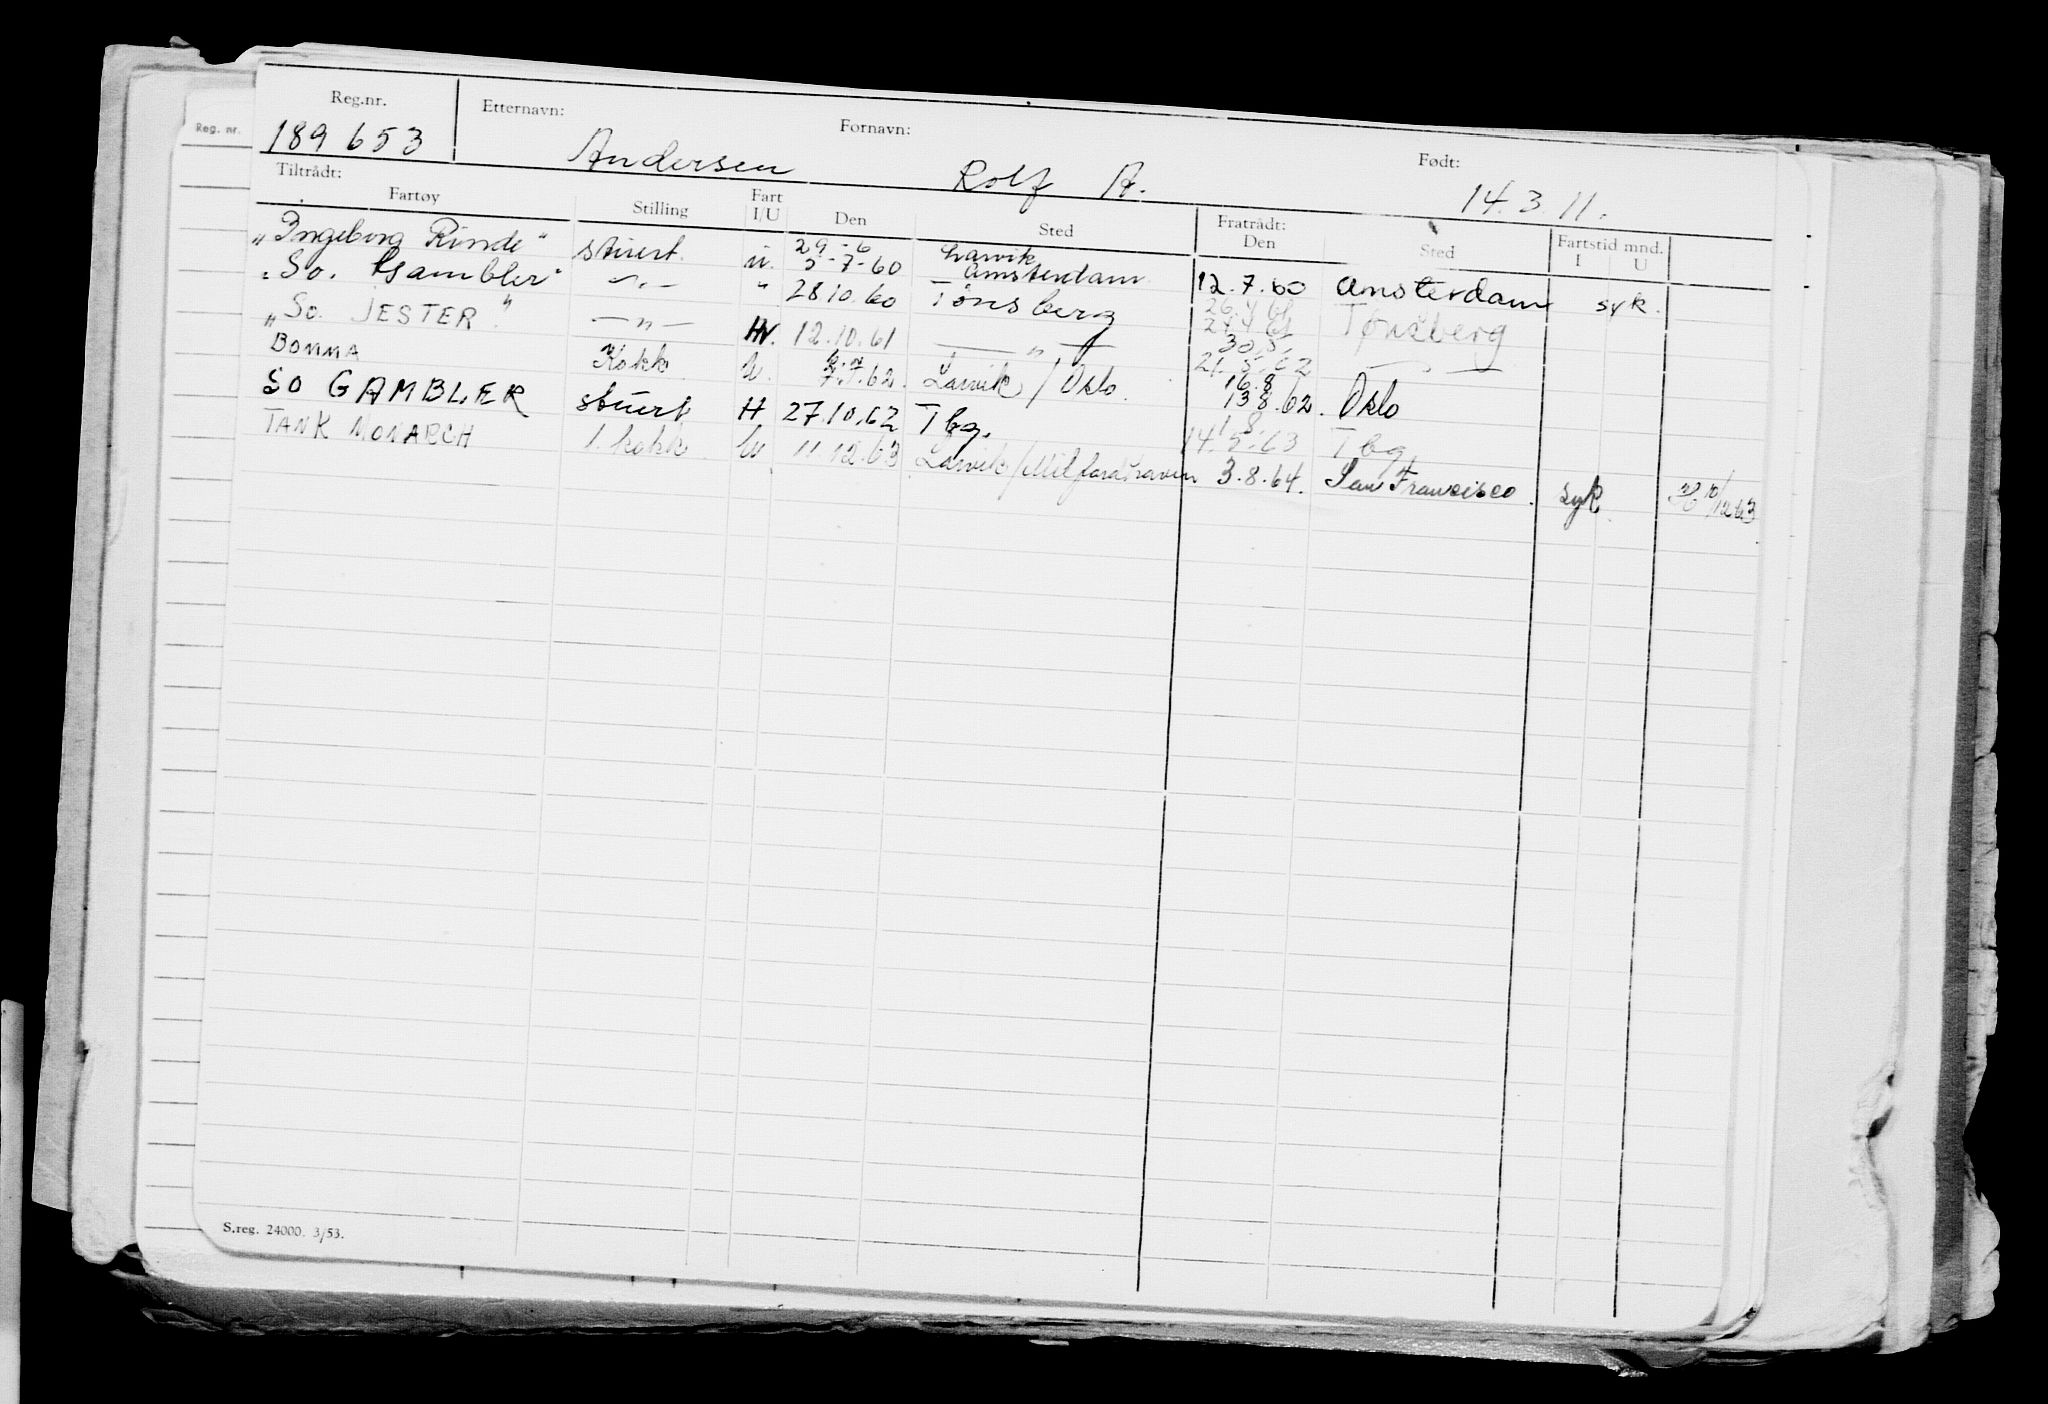 Reg. nr.
Reg.nr. Etternavn: Fornavn: Født:
189653 Andersen Rolf A. 14.3.11.
Tiltrådt: Fratrådt:
Fartøy Stilling Fart I/U Den Sted Den Sted Fartstid mnd. I U
29-6 Larvik
"Ingeborg Rinde" stuert. u. 5-7-60 Amsterdam 12.7.60 Amsterdam syk.
26.4.61
"So. Gambler" -"- " 28.10.60 Tønsberg 27.4.61 Tønsberg
30.5.
"So. JESTER." -"- 12.10.61 -"- 21.5.62 -"-
16.8
BOMMA Kokk U. 7.7.62. Larvik/Oslo. 13.8.62. Oslo
1.8.
SO GAMBLER stuert H 27.10.62 Tbg. 14.5.63 Tbg
TANK MONARCH 1. kokk U 11.12.63 Larvik/Milfordhaven 3.8.64. San Francisco. syk. 10/12 63
S.reg. 24000. 3/53.